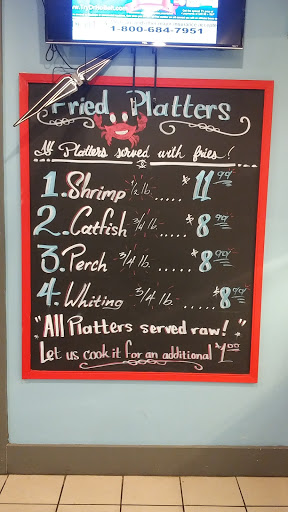 1-800-684-7951
Fried Platters
All Platters served with fries!
1. Shrimp 1/2 lb. ..... $11.99
2. Catfish 3/4 lb. ..... $8.99
3. Perch 3/4 lb. ..... $8.99
4. Whiting 3/4 lb. ..... $8.99
"All Platters served raw!"
Let us cook it for an additional $1.00